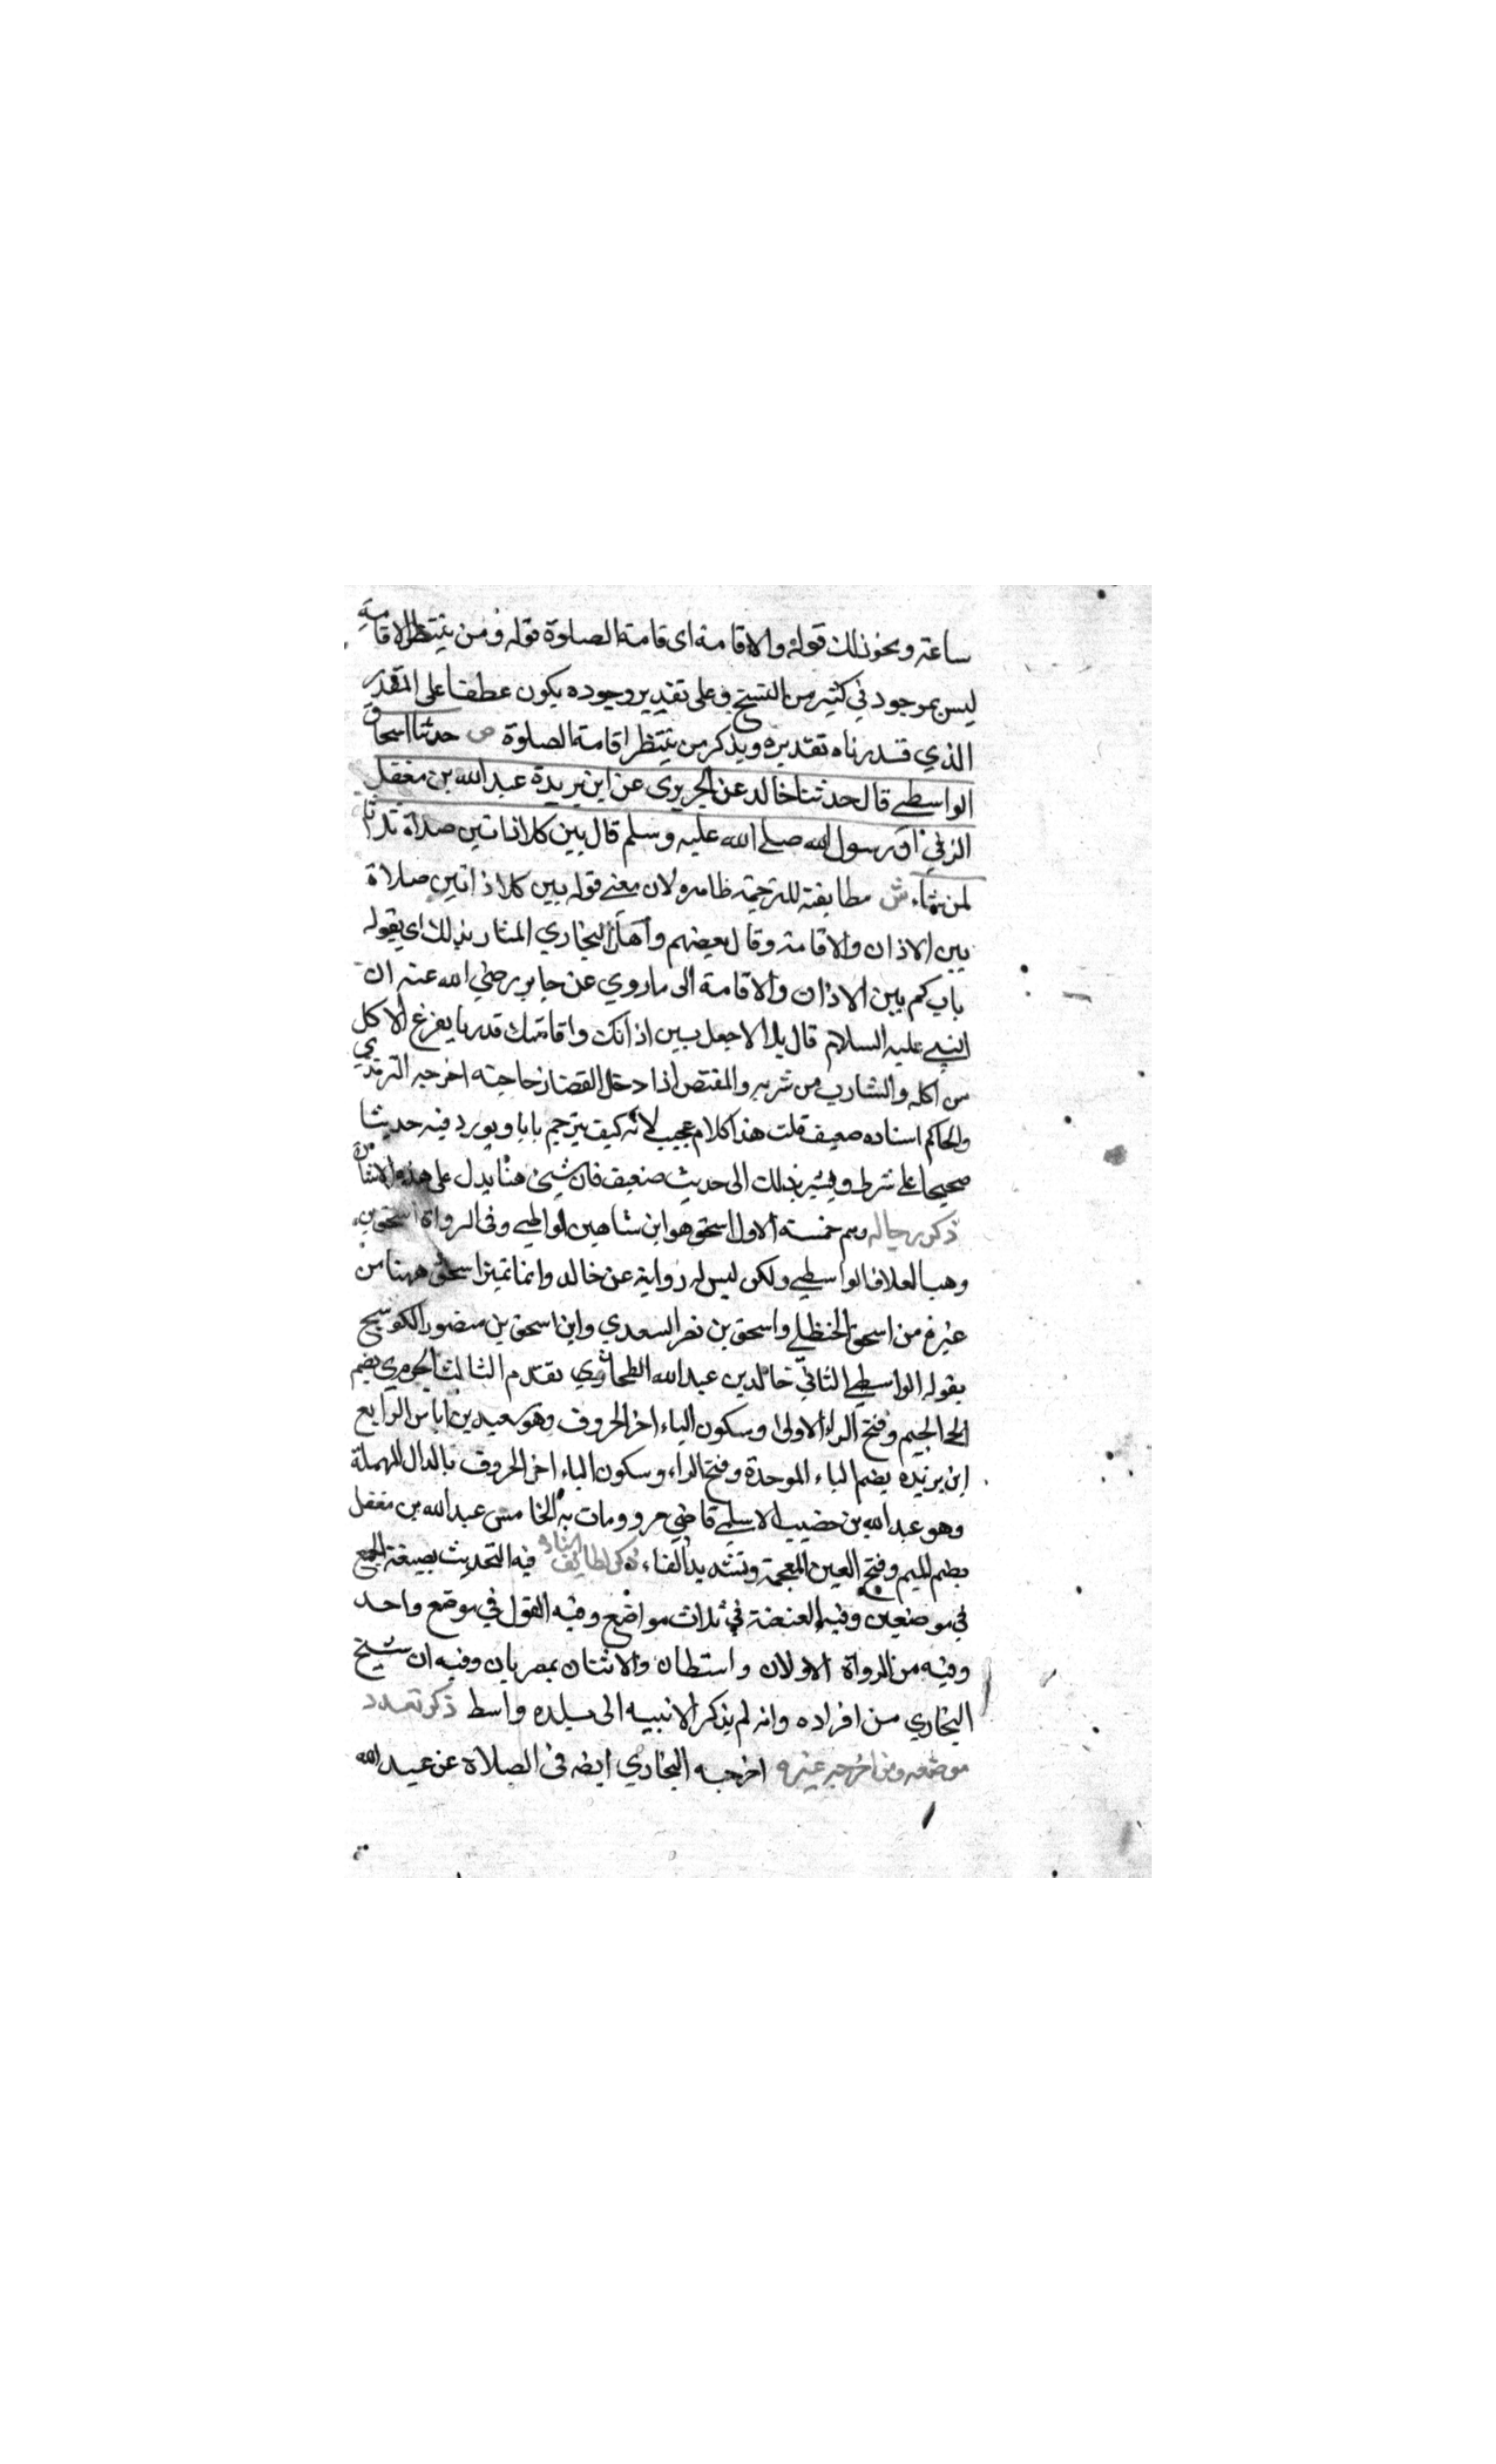 ساعة ونحو ذلك قوله والاقامة اى اقامة الصلوة قوله ومن ينتظر الاقامة
ليس بموجود في كثير من النسخ وعلى تقدير وجوده يكون عطفا على المقدر
الذي قدرناه تقديره ويذكر من ينتظر اقامة الصلوة ص حدثنا اسحاق
الواسطي قال حدثنا خالد عن الجريرى عن ابن بريدة عبد الله بن مغفل
المزني ان رسول الله صلى الله عليه وسلم قال بين كل اذانين صلاة ثلاثا
لمن شاء ش مطابقته للترجمة ظاهره لان معنى قوله بين كل اذانين صلاة
بين الاذان والاقامة وقال بعضهم البخاري اشار بذلك اى بقوله
باب كم بين الاذان والاقامة الى ما روي عن جابر رضي الله عنه ان
النبي عليه السلام قال لبلال اجعل بين اذانك واقامتك قدر ما يفرغ الاكل
من اكله والشارب من شربه والمعتصر اذا دخل لقضاء حاجته اخرجه الترمذي
والحاكم اسناده ضعيف قلت هذا كلام عجيب لانه كيف يترجم بابا ويورد فيه حديثا
صحيحا على شرطه ويشير بذلك الى حديث ضعيف فاى شيئ هنا يدل على هذه الاشارة
ذكر رجاله وهم خمسة الاول اسحق هو ابن شاهين الواسطي وفى الرواة اسحق بن
وهب العلاف الواسطي ولكن ليس له رواية عن خالد وانما تميز اسحق ههنا من
غيره من اسحق الحنظلي واسحق بن نصر السعدي وابن اسحق بن منصور الكوسج
بقوله الواسطي الثاني خالد بن عبد الله الطحان تقدم الثالث الجريري بضم
الجيم وفتح الراء الاولى وسكون الياء اخر الحروف وهو سعيد بن اياس الرابع
ابن بريده بضم الباء الموحدة وفتح الراء وسكون الياء اخر الحروف بالدال المهملة
وهو عبد الله بن حضيب الاسلمي قاضي مرو ومات بها الخامس عبد الله بن مغفل
بضم الميم وفتح الغين المعجمة وتشديد الفاء ذكر لطائف اسناده فيه التحديث بصيغة الجمع
في موضعين وفيه العنعنة في ثلاث مواضع وفيه القول في موضع واحد
وفيه من الرواة الاولان واسطان والاثنان بصريان وفيه ان شيخ
البخاري من افراده وانه لم يذكر الا نسبه الى بلده واسط ذكر تعدد
موضعه ومن اخرجه غيره اخرجه البخاري ايضه فى الصلاة عن عبد الله